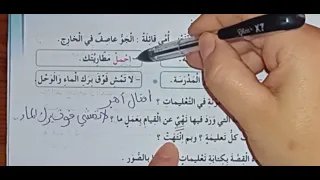 أُمّي قائِلَةً : الجَوُّ عاصِفٌ في الخارِجِ.
احْمِلْ مِظَلَّتَكَ.
المَدْرَسَةِ.
- لا تَمْشِ فَوْقَ بِرَكِ الماءِ وَالوَحْلِ
في التَّعْليماتِ ؟
أفعال أمر
الَّتي وَرَدَ فيها نَهْيٌ عَنِ القِيامِ بِعَمَلٍ ما ؟
لا تمشي فوق برك الماء..
كُلُّ تَعْليمَةٍ ؟ وبِمَ انْتَهَتْ ؟
القِصَّةَ بِكِتابَةِ تَعْليماتٍ
بِالصُّوَرِ.